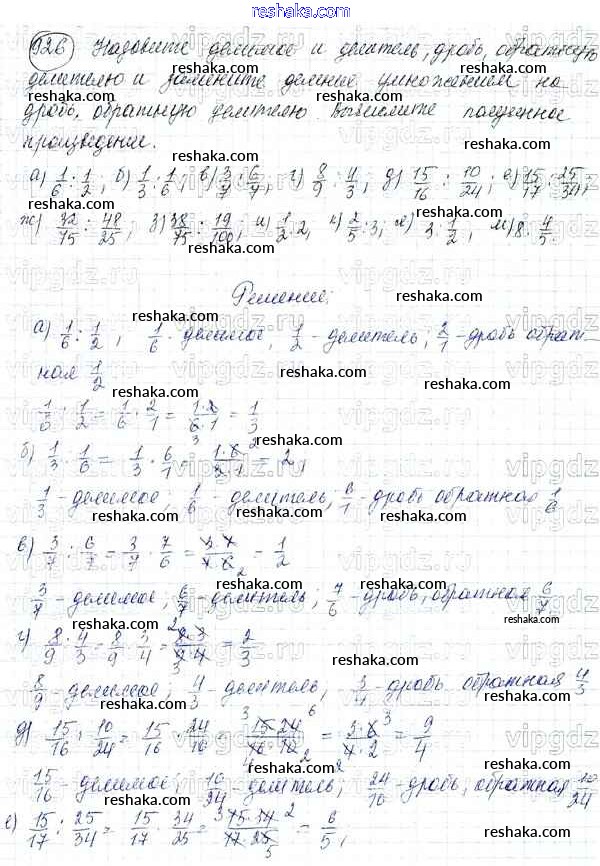 926 Назовите делимое и делитель, дробь, обратную
делителю и замените деление умножением на
дробь, обратную делителю. Вычислите полученное
произведение.
а) 1/6 : 1/2; б) 1/3 : 1/6; в) 3/7 : 6/7; г) 8/9 : 4/3; д) 15/16 : 10/24; е) 15/17 : 25/34;
ж) 32/75 : 48/25; з) 38/75 : 19/100; и) 1/2 : 2; к) 2/5 : 3; л) 3 : 1/2; м) 8 : 4/5.
Решение:
а) 1/6 : 1/2; 1/6 - делимое, 1/2 - делитель; 2/1 - дробь обрат-
ная 1/2
1/6 : 1/2 = 1/6 · 2/1 = 1·2/6·1 = 1/3
б) 1/3 : 1/6 = 1/3 · 6/1 = 1·6/3·1 = 2,
1/3 - делимое; 1/6 - делитель, 6/1 - дробь обратная 1/6
в) 3/7 : 6/7 = 3/7 · 7/6 = 3·7/7·6 = 1/2
3/7 - делимое; 6/7 - делитель; 7/6 - дробь, обратная 6/7
г) 8/9 : 4/3 = 8/9 · 3/4 = 8·3/9·4 = 2/3
8/9 - делимое; 4/3 - делитель, 3/4 - дробь обратная 4/3
д) 15/16 : 10/24 = 15/16 · 24/10 = 15·24/16·10 = 3·6/4·2 = 9/4
15/16 - делимое; 10/24 - делитель; 24/10 - дробь, обратная 10/24
е) 15/17 : 25/34 = 15/17 · 34/25 = 15·34/17·25 = 6/5,
reshaka.com
vipgdz.ru